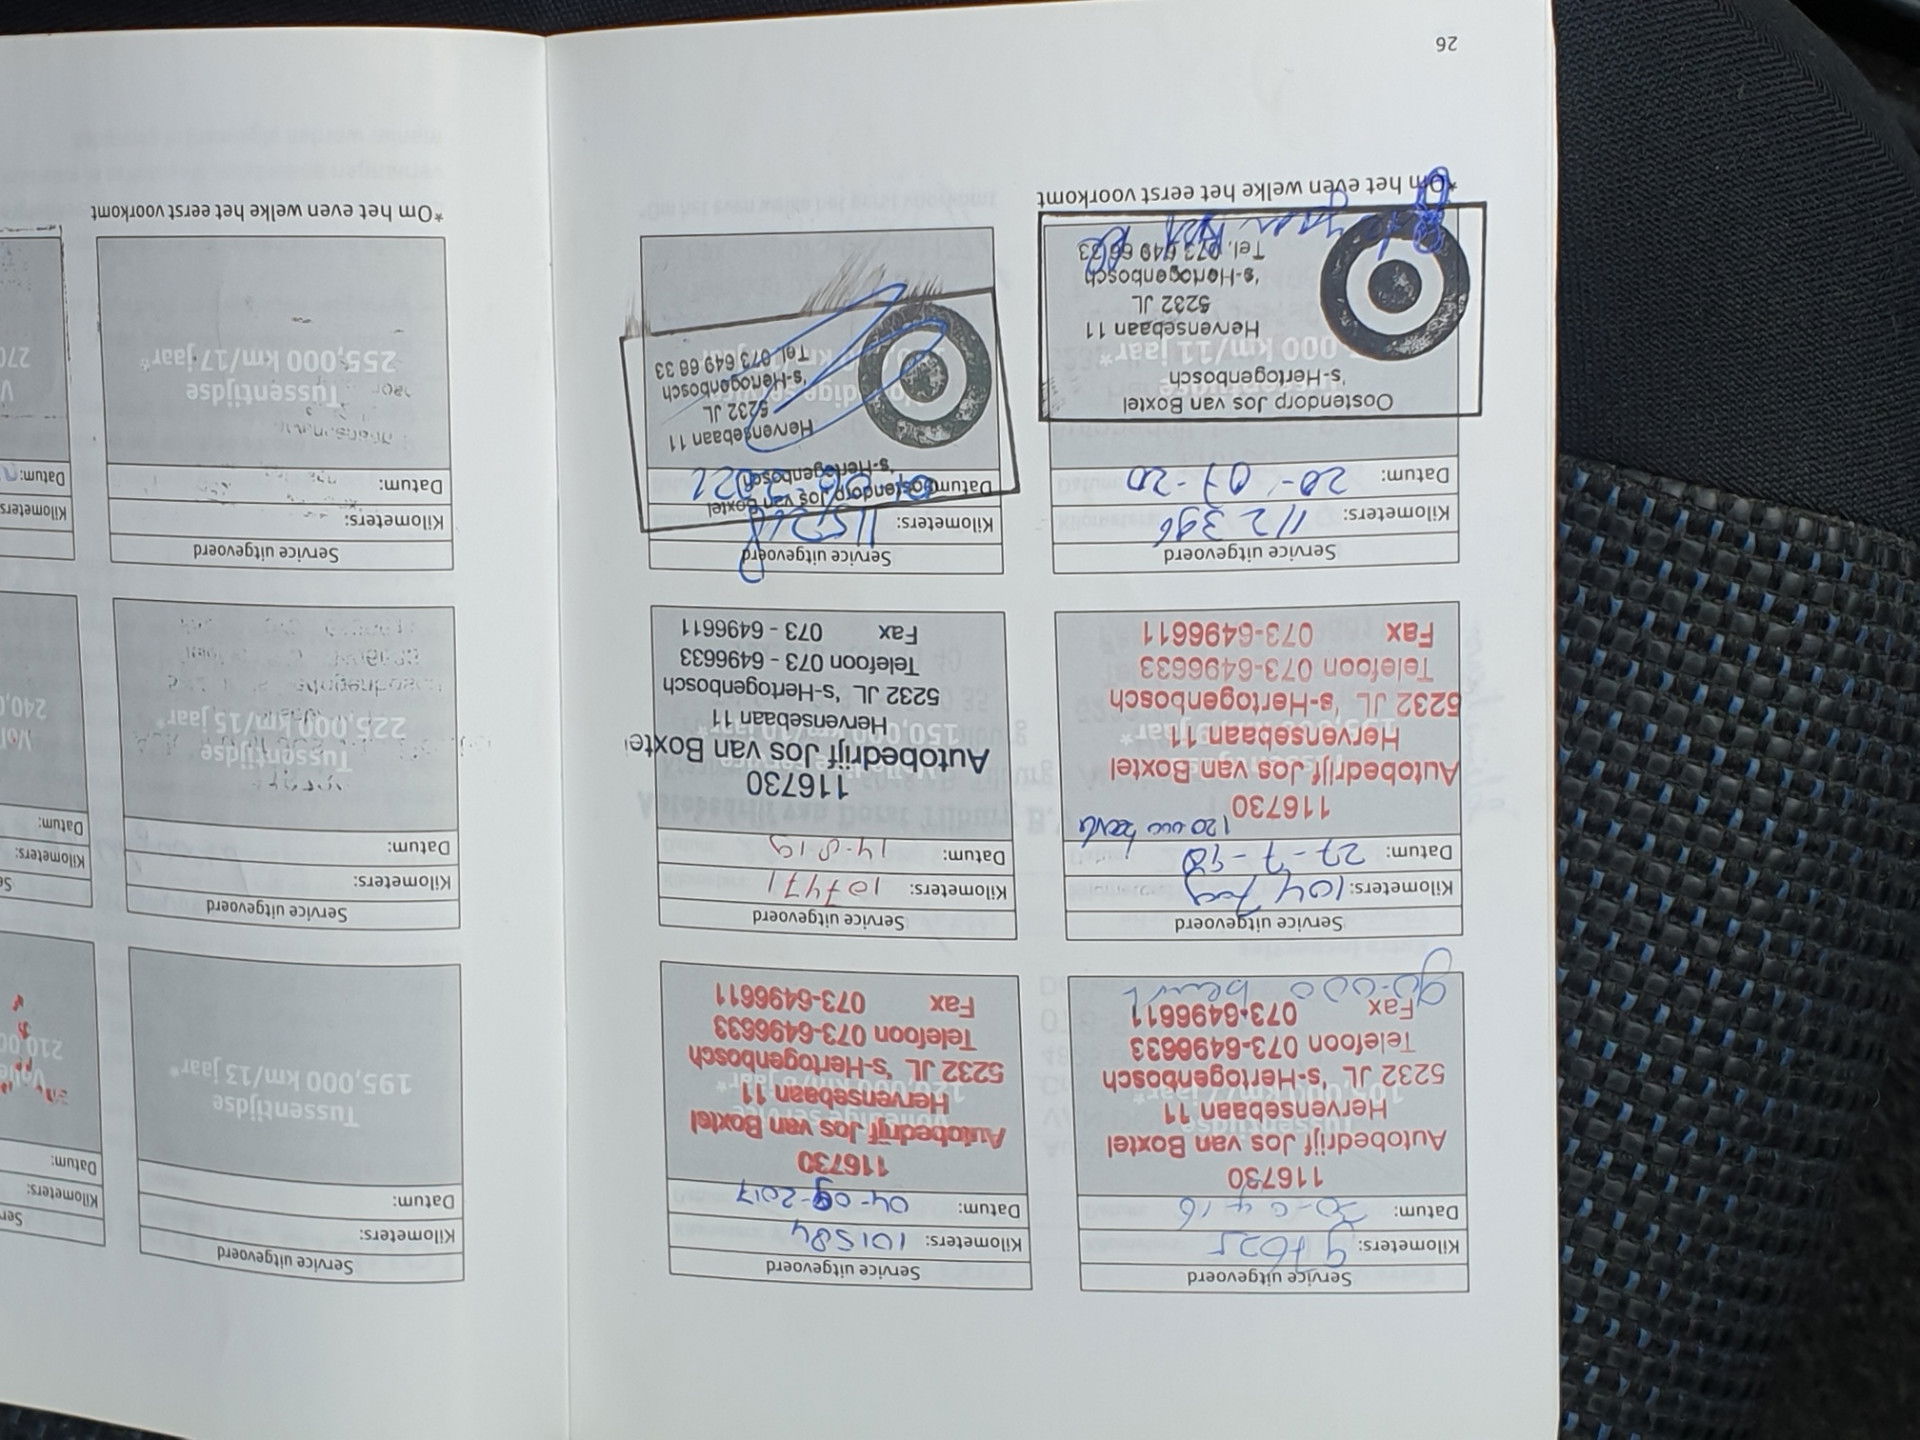 Service uitgevoerd
Kilometers: 97025
Datum: 30-04-16
116730
Autobedrijf Jos van Boxtel
Hervensebaan 11
5232 JL 's-Hertogenbosch
Telefoon 073-6496633
Fax 073-6496611
90.000 beurt
Service uitgevoerd
Kilometers: 101584
Datum: 04-09-2017
116730
Autobedrijf Jos van Boxtel
Hervensebaan 11
5232 JL 's-Hertogenbosch
Telefoon 073-6496633
Fax 073-6496611
Service uitgevoerd
Kilometers: 104
Datum: 27-7-18
120.000 beurt
116730
Autobedrijf Jos van Boxtel
Hervensebaan 11
5232 JL 's-Hertogenbosch
Telefoon 073-6496633
Fax 073-6496611
Service uitgevoerd
Kilometers: 107471
Datum: 14-8-19
116730
Autobedrijf Jos van Boxte
Hervensebaan 11
150,000 km/10 jaar*
5232 JL 's-Hertogenbosch
Telefoon 073 - 6496633
Fax 073 - 6496611
Service uitgevoerd
Kilometers: 112396
Datum: 20-07-20
Oostendorp Jos van Boxtel
's-Hertogenbosch
000 km/11 jaar*
Hervensebaan 11
5232 JL
's-Hertogenbosch
Tel. 073 649 66 33
*Om het even welke het eerst voorkomt
26
Service uitgevoerd
Kilometers: 115268
Datum: 2021
Oostendorp Jos van Boxtel
's-Hertogenbosch
Hervensebaan 11
5232 JL
's-Hertogenbosch
Tel. 073 649 66 33
Service uitgevoerd
Kilometers:
Datum:
Tussentijdse
195,000 km/13 jaar*
Service uitgevoerd
Kilometers:
Datum:
Tussentijdse
225,000 km/15 jaar*
Service uitgevoerd
Kilometers:
Datum:
Tussentijdse
255,000 km/17 jaar*
*Om het even welke het eerst voorkomt
Ser
Kilometers:
Datum:
Volle
210,00
Se
Kilometers:
Datum:
Vol
240,0
Kilometers
Datum:
V
270